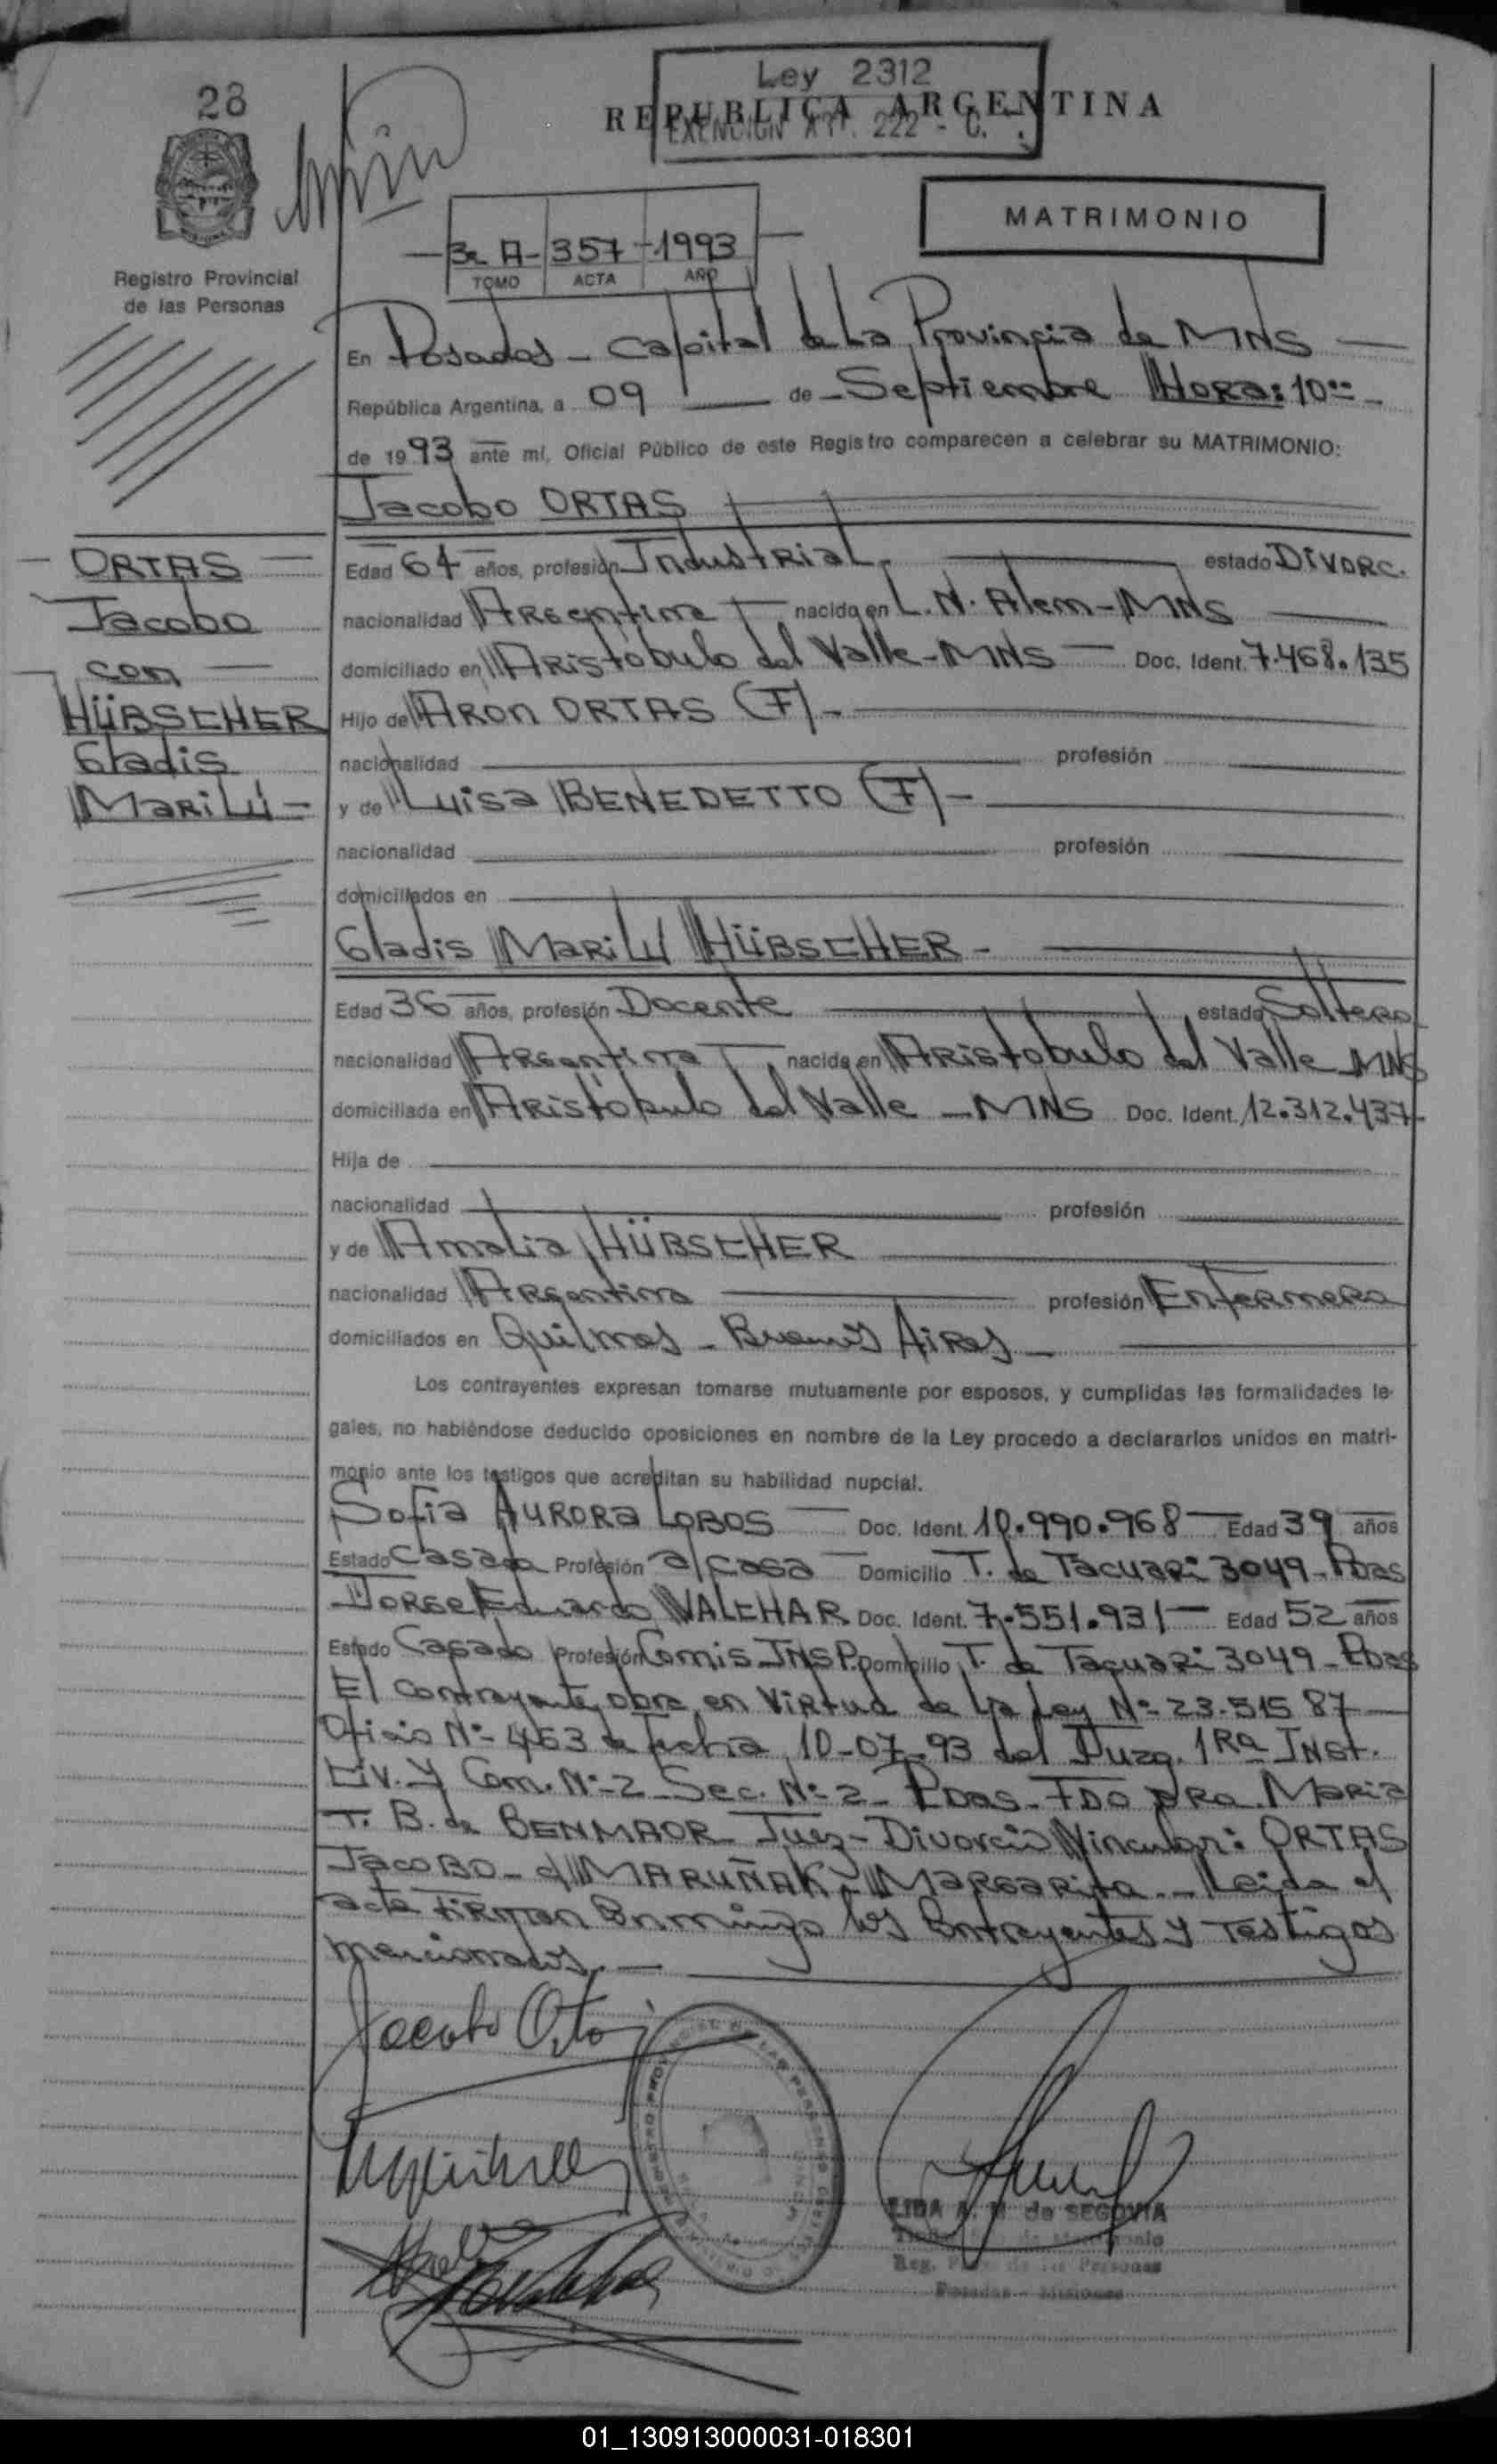 28
Ley 2312
REPUBLICA ARGENTINA
EXENCION ART. 222 - C.
MATRIMONIO
3 A - 357 - 1993
TOMO ACTA AÑO
Registro Provincial
de las Personas
En Posadas - Capital de La Provincia de MNS
República Argentina, a 09 de Septiembre Hora: 10
de 1993 ante mí, Oficial Público de este Registro comparecen a celebrar su MATRIMONIO:
Jacobo ORTAS
ORTAS
Jacobo
con
HÜBSCHER
Gladis
Marilú
Edad 64 años, profesión Industrial estado Divorc.
nacionalidad Argentina nacido en L.N. Alem - MNS
domiciliado en Aristobulo del Valle - MNS Doc. Ident. 7.468.135
Hijo de Aron ORTAS (F)
nacionalidad profesión
y de Luisa BENEDETTO (F)
nacionalidad profesión
domiciliados en
Gladis Marilú HÜBSCHER -
Edad 36 años, profesión Docente estado Soltera
nacionalidad Argentina nacida en Aristobulo del Valle MNS
domiciliada en Aristobulo del Valle - MNS Doc. Ident. 12.312.437
Hija de
nacionalidad profesión
y de Amalia HÜBSCHER
nacionalidad Argentina profesión Enfermera
domiciliados en Quilmes - Buenos Aires
Los contrayentes expresan tomarse mutuamente por esposos, y cumplidas las formalidades le-
gales, no habiéndose deducido oposiciones en nombre de la Ley procedo a declararlos unidos en matri-
monio ante los testigos que acreditan su habilidad nupcial.
Sofia Aurora Lobos Doc. Ident. 10.990.968 Edad 39 años
Estado Casada Profesión a/casa Domicilio T. de Tacuari 3049 - Pdas
Jorge Eduardo VALCHAR Doc. Ident. 7.551.931 Edad 52 años
Estado Casado Profesión Comis INSP. Domicilio T. de Tacuari 3049 - Pdas
El contrayente obra en Virtud de La Ley Nº 23.515 87
Oficio Nº 463 de fecha 10-07-93 del Juzg. 1Ra INST.
Civ. y Com. Nº 2 Sec. Nº 2 - Pdas - FDO DRa. Maria
T. B. de BENMAOR Juez - Divorcio Vincular: ORTAS
Jacobo - c/ MARUÑAK, Margarita. - Leida el
acta firman Conmigo los Contrayentes y Testigos
mencionados.
Jacobo Ortas
LIDA A. M. de SEGOVIA
Reg. de las Personas
Posadas - Misiones
01_130913000031-018301